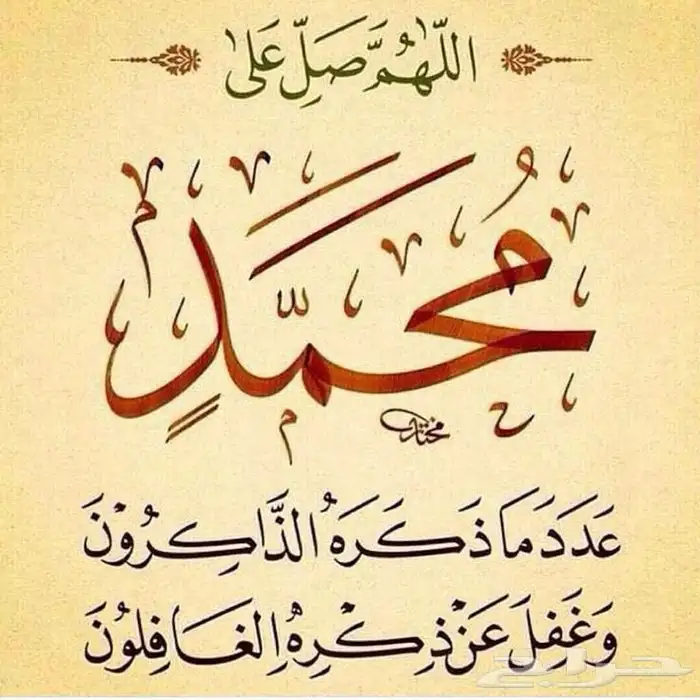 اللّٰهُمَّ صَلِّ عَلَىٰ
مُحَمَّدٍ
مختار
عَدَدَ مَا ذَكَرَهُ الذَّاكِرُوْنَ
وَغَفِلَ عَنْ ذِكْرِهِ الغَافِلُوْنَ
حراج